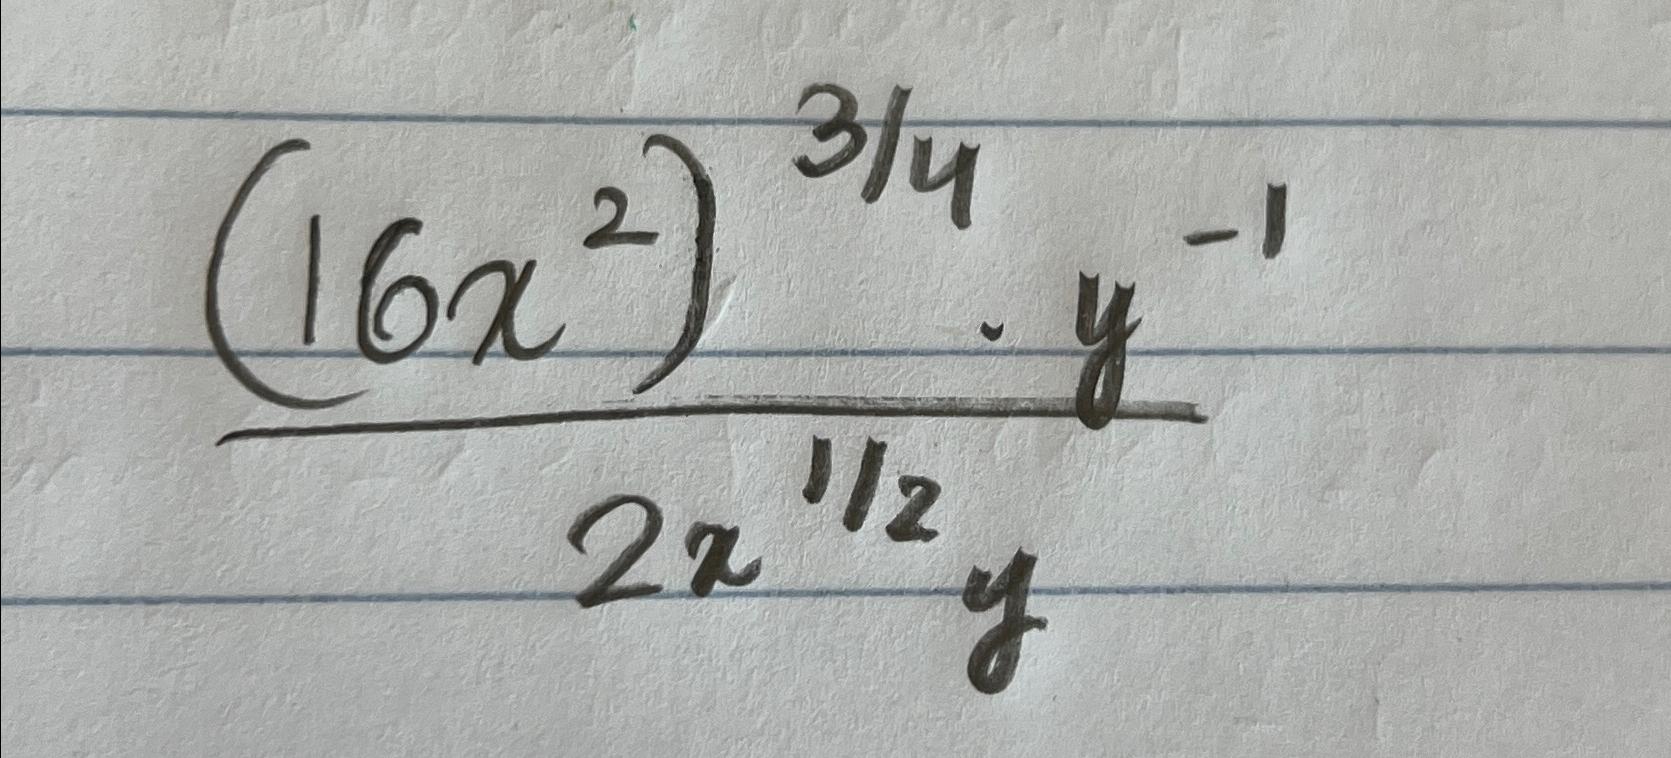 (16x²)^3/4 · y^-1
2x^1/2 y